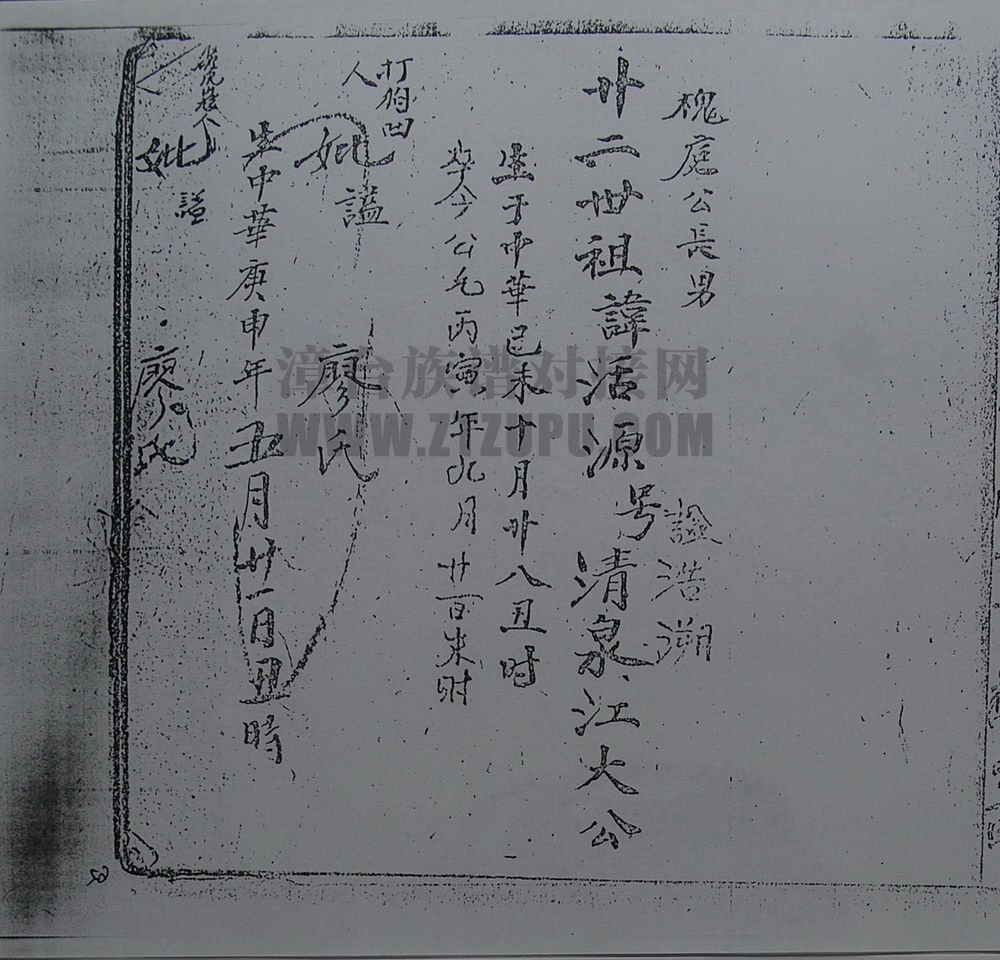 槐庭公長男
諡浩溯
廿二世祖諱活源号清泉江大公
生于中華己未十月廿八丑时
卒今公元丙寅年九月廿一日未时
打伯凹人
妣諡廖氏
生中華庚申年五月廿一日丑時
妣諡廖氏
漳台族谱对接网
WWW.ZTZUPU.COM